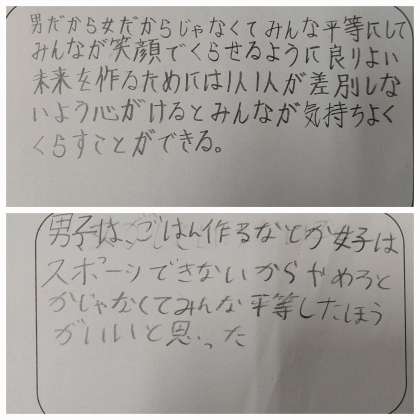 男だから女だからじゃなくてみんな平等にして
みんなが笑顔でくらせるように良りよい
未来を作るためには1人1人が差別しな
いよう心がけるとみんなが気持ちよく
くらすことができる。
男子は、ごはん作るなとか女子は
スポーツできないからやめろと
かじゃなくてみんな平等したほう
がいいと思った